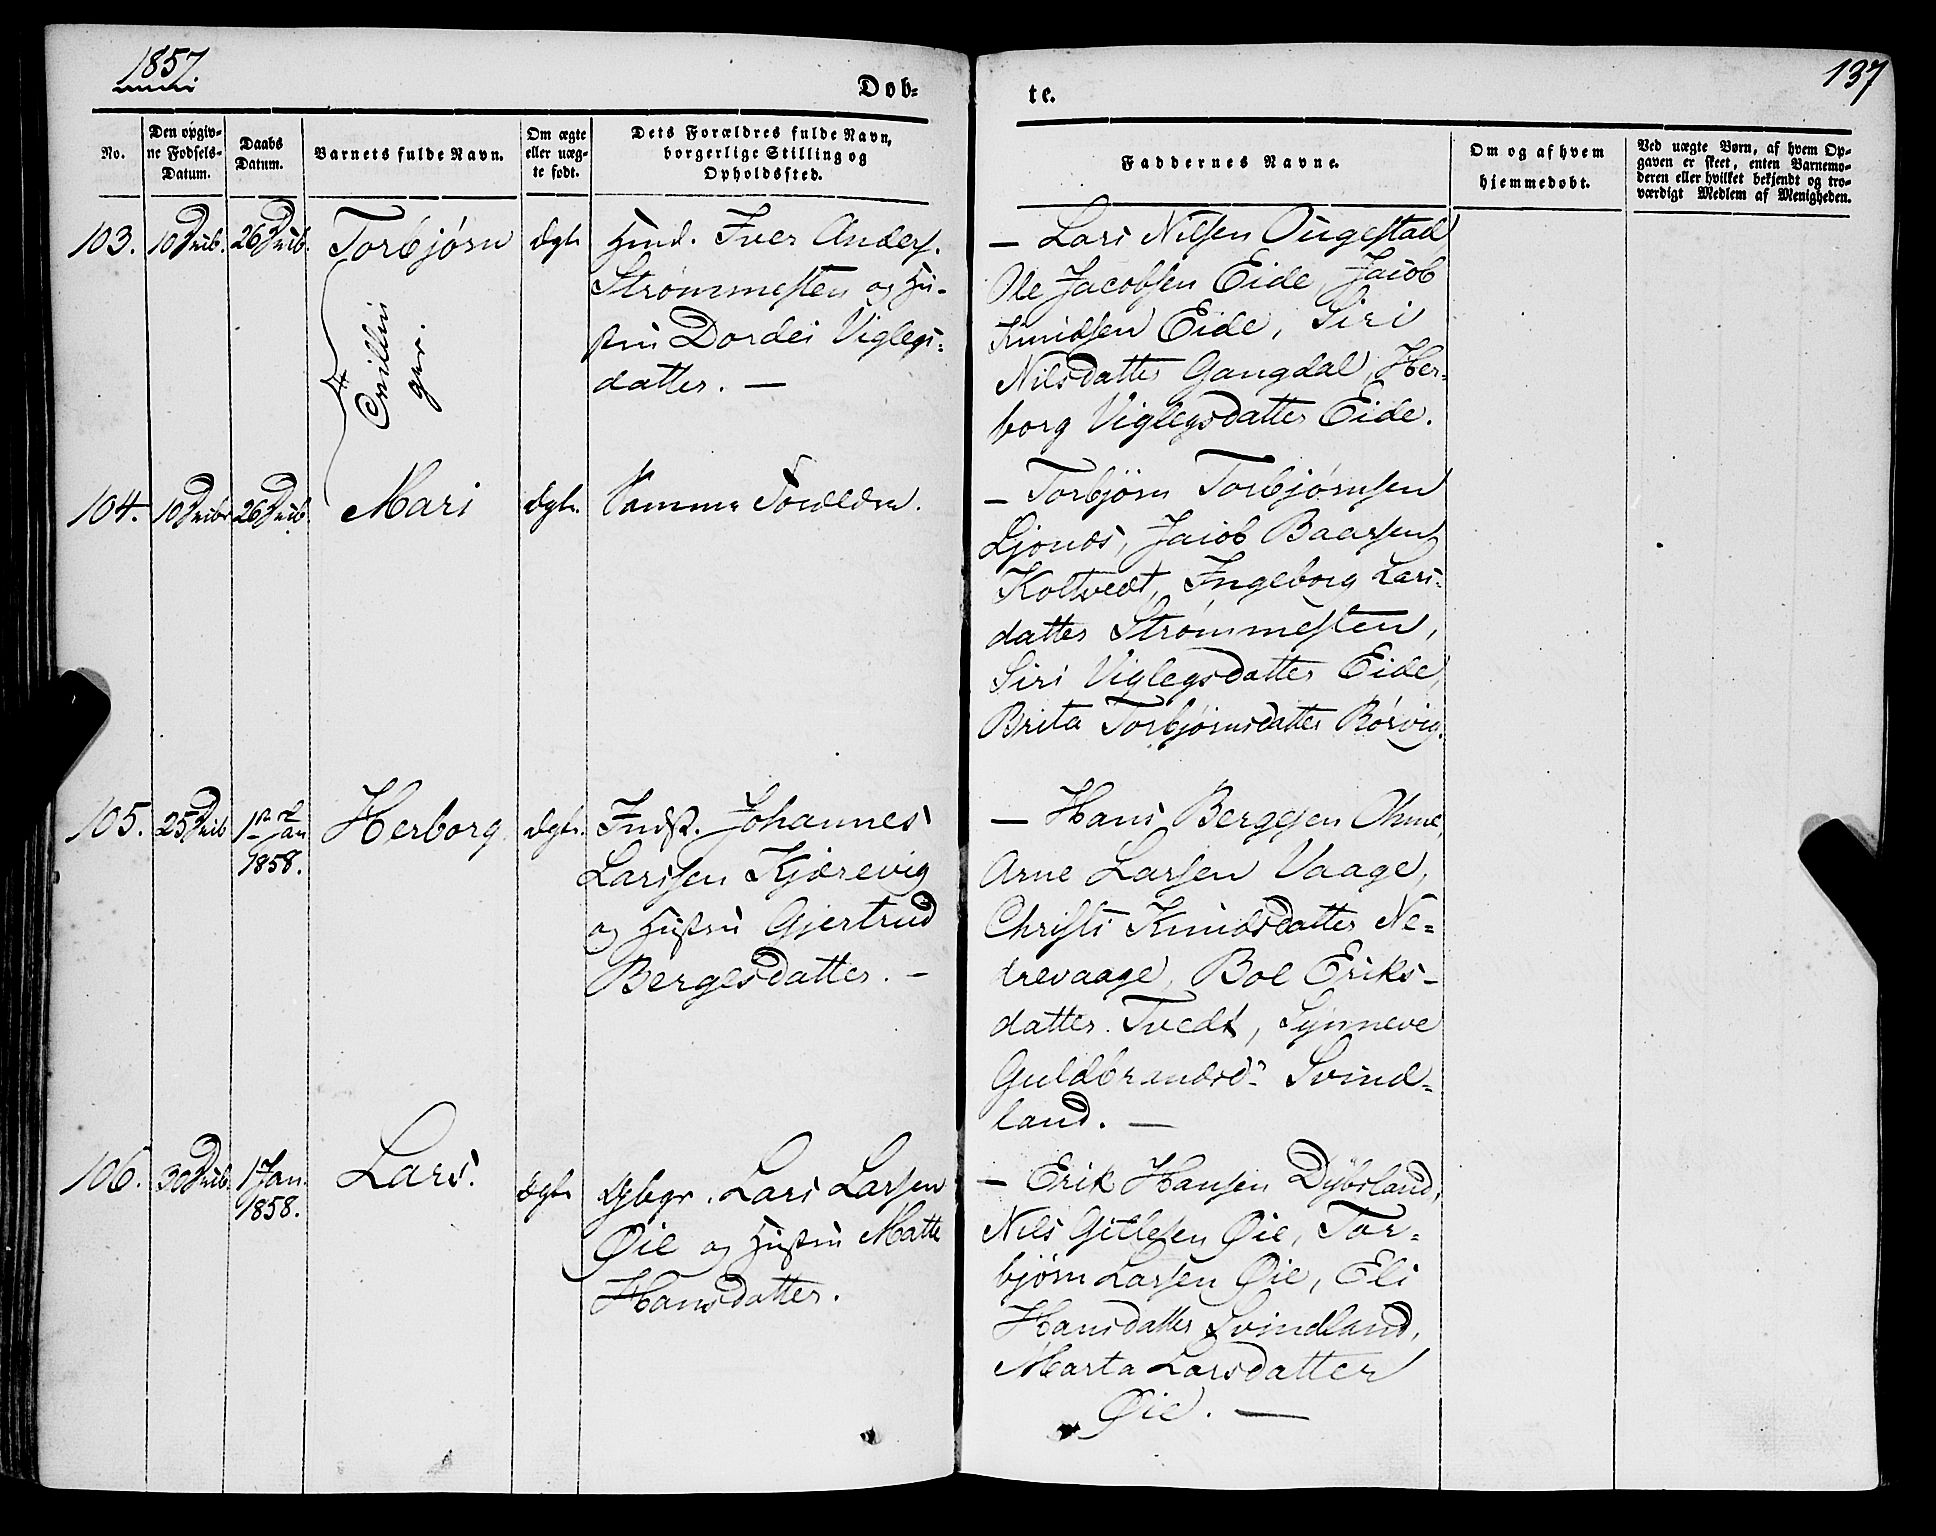 1857.
137
Døb-
te.
No.
Den opgiv-
ne Fødsels-
Datum.
Daabs
Datum.
Barnets fulde Navn.
Om ægte
eller uæg-
te født.
Dets Forældres fulde Navn,
borgerlige Stilling og
Opholdssted.
Faddernes Navne.
Om og af hvem
hjemmedøbt.
Ved uægte Børn, af hvem Op-
gaven er skeet, enten Barnemo-
deren eller hvilket bekjendt og tro-
værdigt Medlem af Menigheden.
103. 10 Dcib. 26 Dcib. Torbjørn ægte
Tvillin
ger.
Iver Anders.
Strømmesten og Hu-
stru Dordei Viglegs-
datter. —
— Lars Nilsen Ougestad
Ole Jacobsen Eide, Jacob
Knudsen Eide, Siri
Nilsdatter Gangdal, Her-
borg Viglegsdatter Eide.
104. 10 Dcibr 26 Dcib. Mari ægte. Samme Forældre.
— Torbjørn Torbjørnsen
Djonås, Jacob Baarsen
Koltvedt, Ingeborg Lars-
datter Strømmesten,
Siri Viglegsdatter Eide,
Brita Torbjørnsdatter Rørvig.
105. 25 Dcib 1ste Jan
1858.
Herborg ægte.
Indst. Johannes
Larssen Kjærevig
og Hustru Gjertrud
Bergesdatter. —
— Hans Bergesen Ohme,
Arne Larsen Vaage,
Christi Knudsdatter Ne-
drevaage, Boe Eriks-
datter Tvedt, Synneve
Guldbrandsd. Svind-
land. —
106. 30 Dcib. 1 Jan.
1858.
Lars. ægte
Lars Larsen
Øie og Hustru Matte
Hansdatter.
— Erik Hansen Dybsland,
Nils Gitlesen Øie, Tor-
bjørn Larsen Øie, Eli
Hansdatter Svindland,
Marta Larsdatter
Øie. —